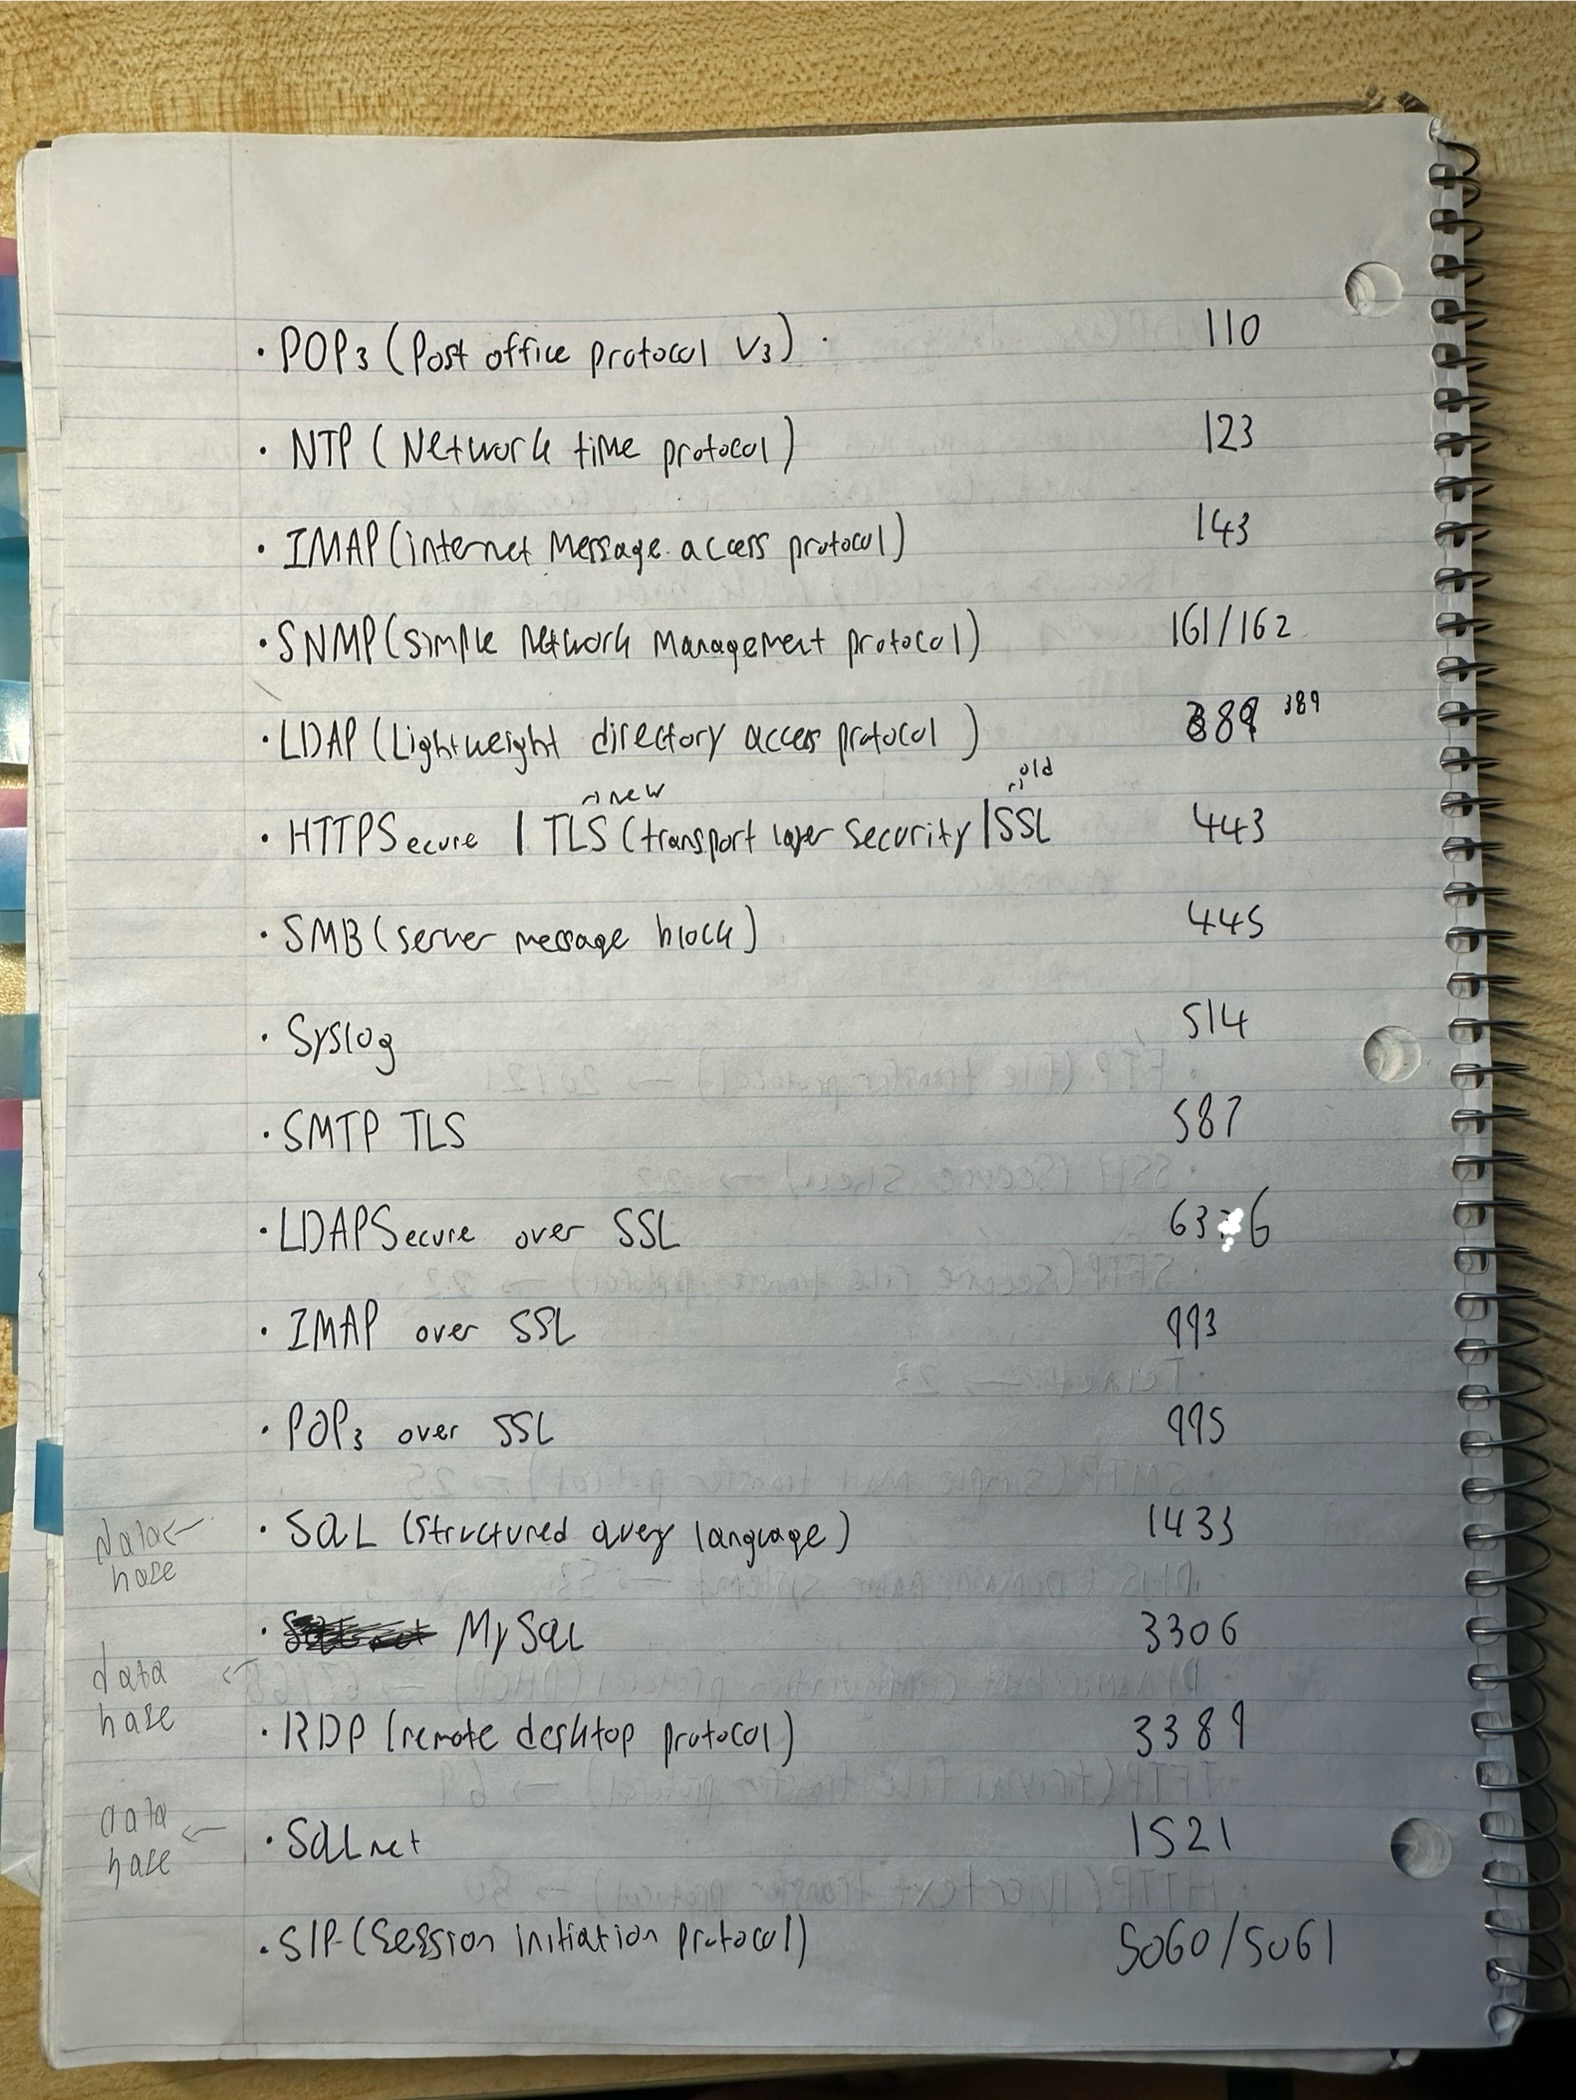 · POP3 (Post office protocol V3) · 110
· NTP (Network time protocol) 123
· IMAP (internet Message access protocol) 143
· SNMP (simple Network Management protocol) 161/162
· LDAP (Lightweight directory access protocol) 389 389
→ new → old
· HTTPSecure | TLS (transport layer security | SSL 443
· SMB (server message block) 445
· Syslog 514
· SMTP TLS 587
· LDAPSecure over SSL 63 6
· IMAP over SSL 993
· POP3 over SSL 995
data ← · SQL (Structured query language) 1433
base
· MySQL 3306
data ←
base · RDP (remote desktop protocol) 3389
data ← · SQLnet 1521
base
· SIP (Session initiation protocol) 5060/5061